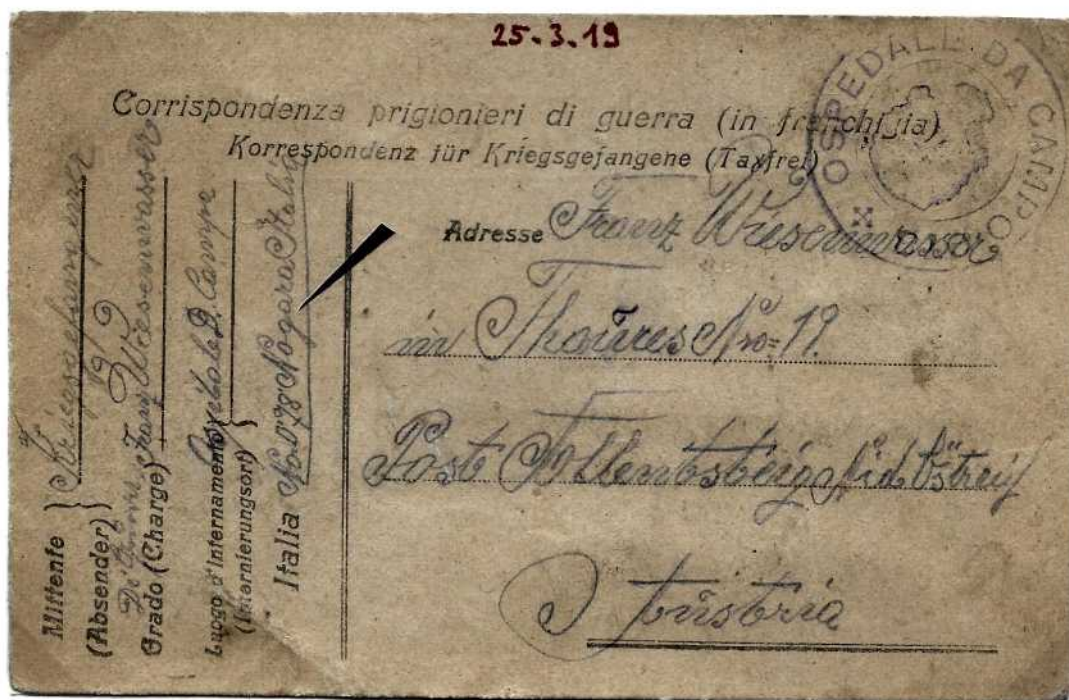 25.3.19
OSPEDALE DA CAMPO
Corrispondenza prigionieri di guerra (in franchigia)
Korrespondenz für Kriegsgefangene (Taxfrei)
Adresse Franz Wiesenwasser
in Thaures Nro= 19.
Post Nid. Östreich
Austria
Mittente
(Absender)
Kriegsgefangener
Grado (Charge) Franz Wiesenwasser
Luogo d'Internamento
(Internierungsort)
D. Campo
Italia No 078 Nogara Italia